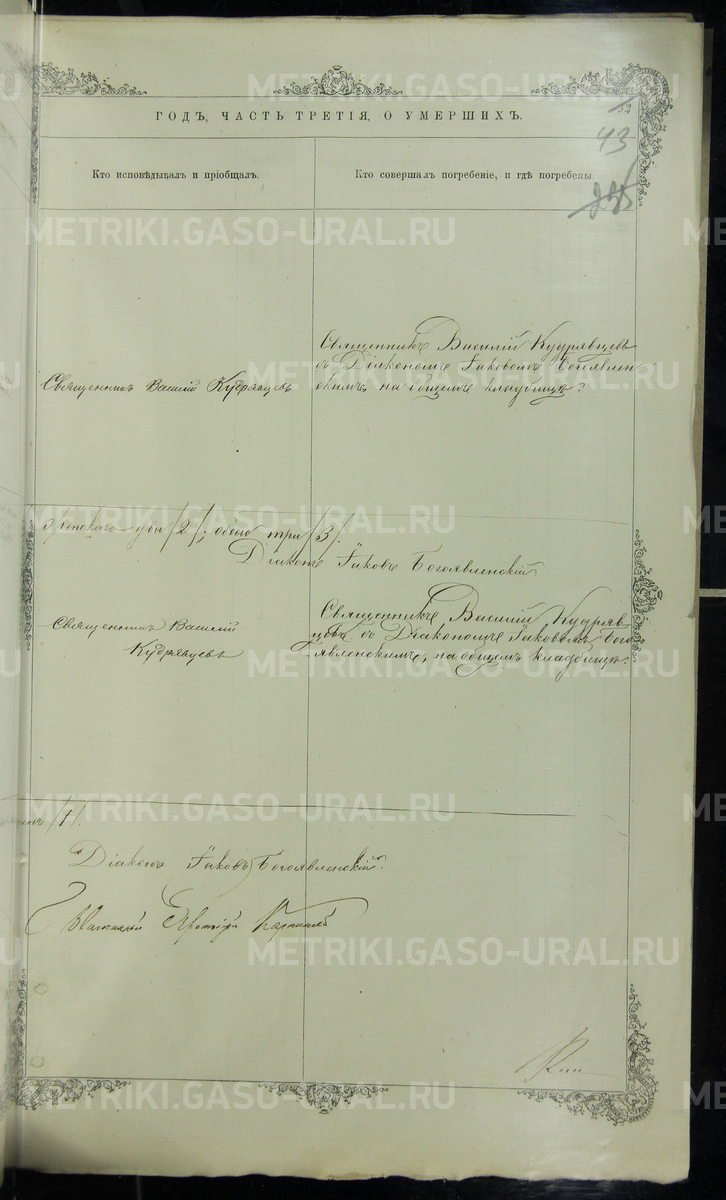 ГОДЪ, ЧАСТЬ ТРЕТІЯ, О УМЕРШИХЪ.
52
43
Кто исповѣдывалъ и пріобщалъ.
Кто совершалъ погребеніе, и гдѣ погребены.
Священникъ Василій Кудрявцевъ
Священникъ Василій Кудрявцевъ
съ Діакономъ Іаковомъ Богоявлен
скимъ, на общемъ кладбищѣ.
женскаго – два /2/; обоего три /3/.
Діаконъ Іаковъ Богоявленскій
Священникъ Василій
Кудрявцевъ
Священникъ Василій Кудряв-
цевъ съ Діакономъ Іаковомъ Бого
явленскимъ, на общемъ кладбищѣ.
/1/.
Діаконъ Іаковъ Богоявленскій.
Протоіерей
METRIKI.GASO-URAL.RU